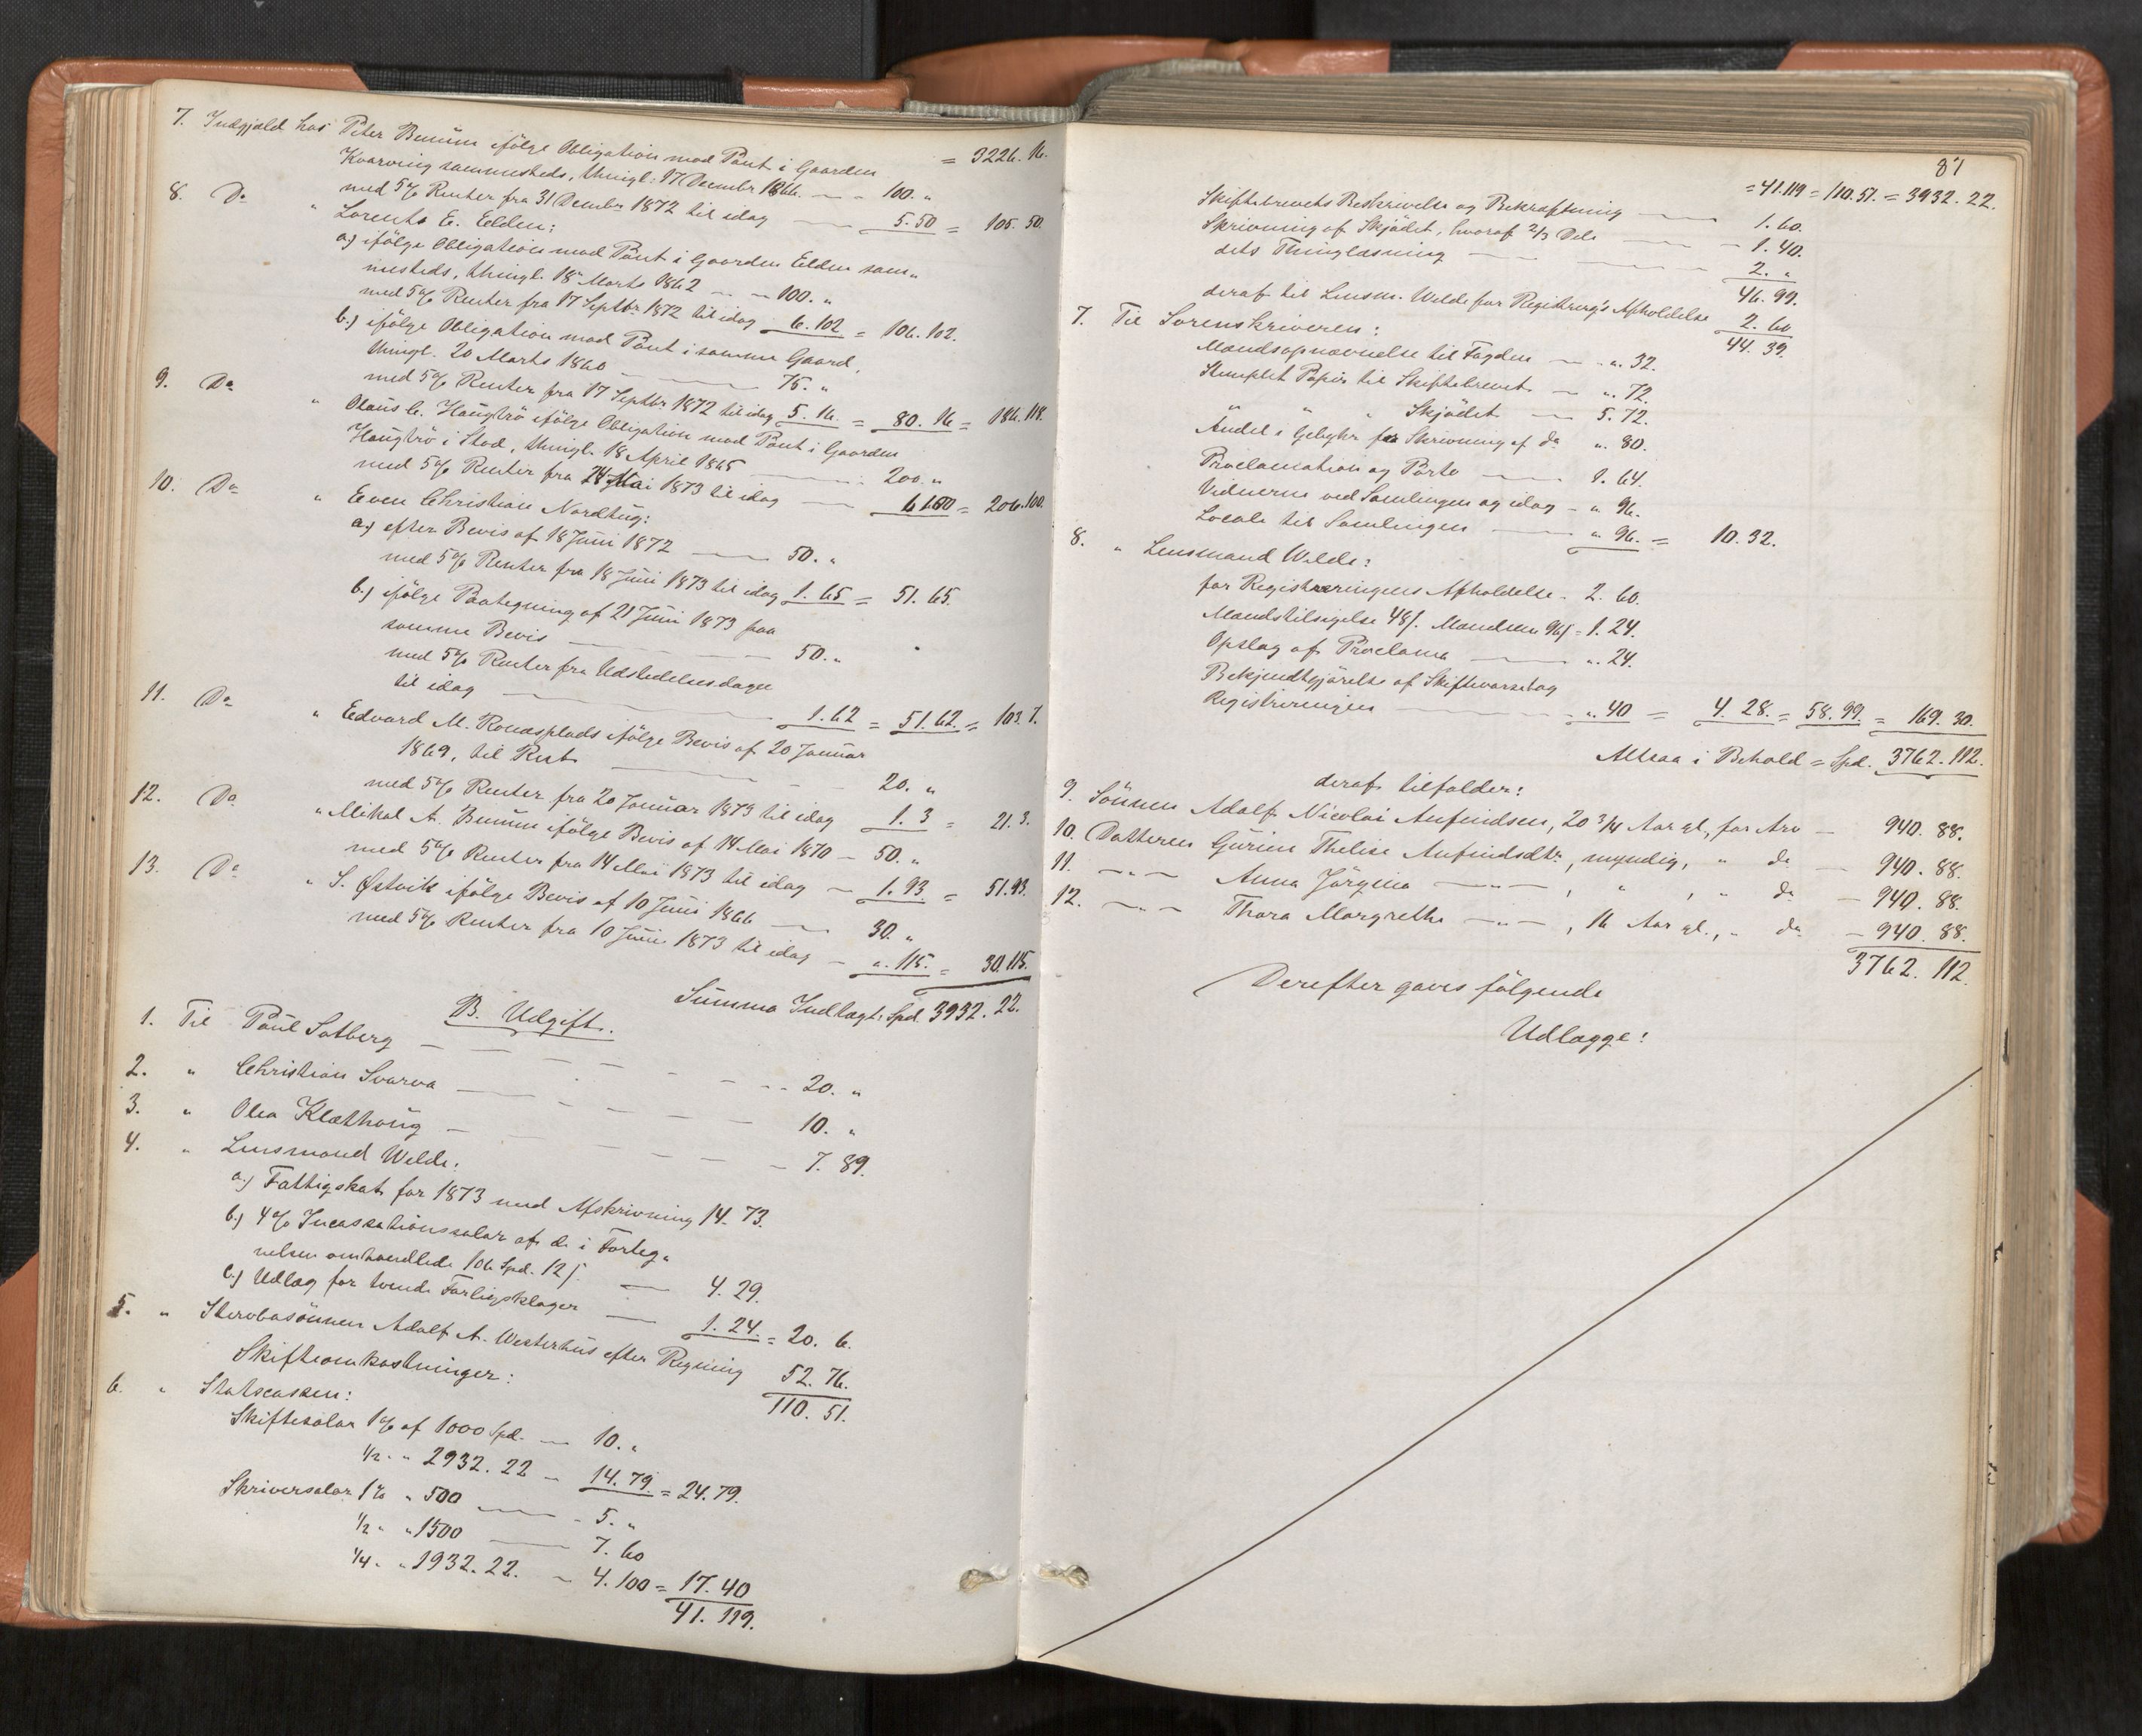 = 3226. 16.
7. Indgjæld hos Peter Bunum ifölge Obligation med Pant i Gaarden
Kvarving sammesteds, thingl: 17 Decembr 1866. — 100. „
med 5% Renter fra 31 Decembr 1872 til idag — 5. 50 = 105. 50.
8. Do „ Lorents E. Elden:
a.) ifölge Obligation med Pant i Gaarden Elden sam-
mesteds, thingl. 18 Marts 1862 — 100. „
med 5% Renter fra 17 Septbr 1872 til idag 6. 102 = 106. 102.
b.) ifölge Obligation med Pant i samme Gaard,
thingl. 20 Marts 1860 — 75. „
med 5% Renter fra 17 Septbr 1872 til idag 5. 16. = 80. 16 = 186. 118.
9. Do „ Olaus C. Haugtrö ifölge Obligation med Pant i Gaarden
Haugtrö i Stod, thingl. 18 April 1865 — 200. „
med 5% Renter fra 24 Mai 1873 til idag — 6 100 = 206. 100.
10. Do „ Even Christian Nordtug:
a.) efter Bevis af 18 Juni 1872 — 50. „
med 5% Renter fra 18 Juni 1873 til idag 1. 65 = 51. 65.
b.) ifölge Paategning af 21 Juni 1873 paa
samme Bevis — 50. „
med 5% Renter fra Udstedelsesdagen
til idag — 1. 62 = 51. 62. = 103. 7.
11. Do „ Edvard M. Ronæsplads ifölge Bevis af 20 Januar
1869, til Rest — 20. „
med 5% Renter fra 20 Januar 1873 til idag 1. 3 = 21. 3.
12. Do „ Mikal A. Bunum ifölge Bevis af 14 Mai 1870 — 50. „
med 5% Renter fra 14 Mai 1873 til idag — 1. 93. = 51. 93.
13. Do „ S. Østvik ifölge Bevis af 10 Juni 1866 — 30. „
med 5% Renter fra 10 Juni 1873 til idag — „. 115. = 30. 115.
Summa Indtægt Spd. 3932. 22.
B. Udgift.
1. Til Paul Satberg — 20. „
2. „ Christian Svarva — 10. „
3. „ Olea Klæthoug — 7. 89.
4. „ Lensmand Welde:
a.) Fattigskat for 1873 med Afskrivning 14. 73.
b.) 4% Incassationssalær af de i Forteg-
nelsen omhandlede 106 Spd. 12 ſ. — 4. 29.
c.) Udlæg for tvende Forligsklager — 1. 24. = 20. 6.
5. „ Stervbosönnen Adolf A. Westerhus efter Regning 52. 76.
110. 51.
Skifteomkostninger:
6. „ Statscassen:
Skiftesalær 1% af 1000 Spd. — 10. „
1/2 „ „ 2932. 22 — 14. 79. = 24. 79.
Skriversalær 1% „ 500 — 5. „
1/2 „ „ 1500 — 7. 60
1/4 „ „ 1932. 22. — 4. 100 = 17. 40
41. 119.
81
= 41. 119 = 110. 51. = 3932. 22.
Skiftebrevets Beskrivelse og Bekræftning — 1. 60.
Skrivning af Skjödet, hvoraf 2/3 Dele — 1. 40.
dets Thinglæsning — 2. „
46. 99.
deraf til Lensm. Welde for Registrerg's Afholdelse 2. 60
44. 39.
7. Til Sorenskriveren:
Mandsopnævnelse til Fogden — „. 32.
Stemplet Papir til Skiftebrevet — „. 72.
„ „ „ Skjödet — 5. 72.
Andel i Gebyhr for Skrivning af do „. 80.
Proclamation og Porto — 1. 64.
Vidnerne ved Samlingen og idag — „. 96.
Locale til Samlingen — „. 96. = 10. 32.
8. „ Lensmand Welde:
for Registreringens Afholdelse. 2. 60.
Mandstilsigelse 48 ſ. Mændene 96 ſ = 1. 24.
Opslag af Proclama — „. 24.
Bekjendtgjörelse af Skiftevarsel og
Registreringen — „. 40 = 4. 28. = 58. 99. = 169. 30.
Altsaa i Behold = Spd. 3762. 112.
deraf tilfalder:
9. Sönnen Adolf Nicolai Anfindsen, 20 3/4 Aar gl., for Arv — 940. 88.
10. Datteren Gurine Theline Anfindsdtr, myndig, „ do — 940. 88.
11. — „ — Anna Jörgine — „ — , „ , „ do — 940. 88.
12. — „ — Thora Margrethe — „ — , 16 Aar gl., „ do — 940. 88.
3762. 112.
Derefter gaves fölgende
Udlægge: